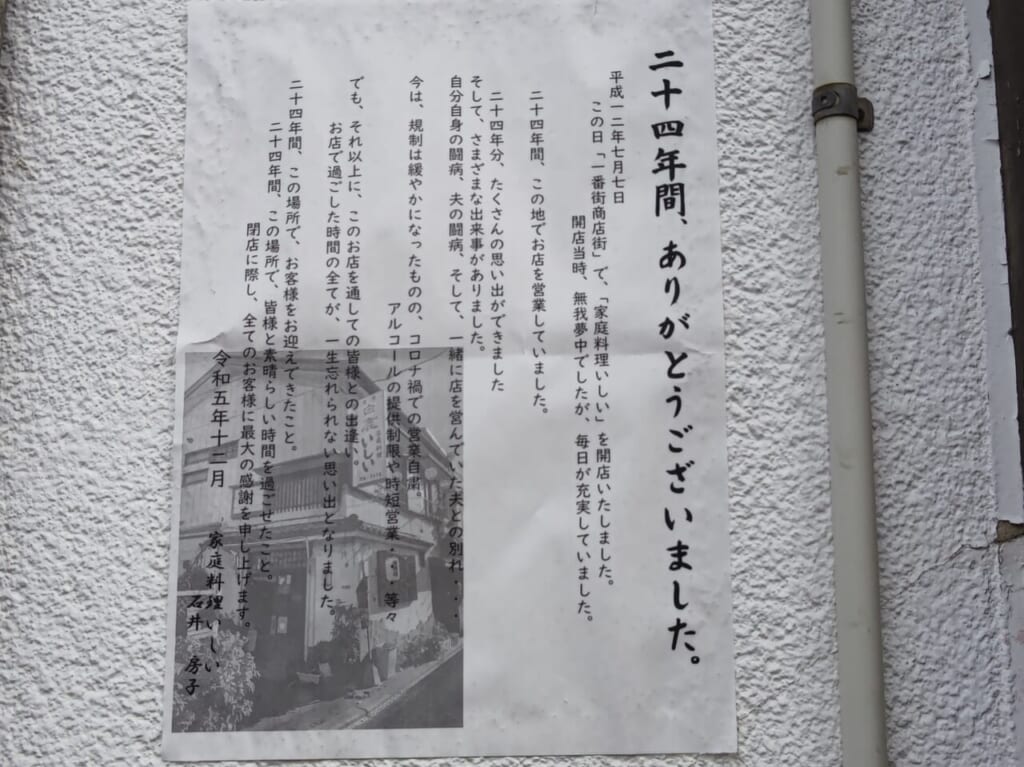 二十四年間、ありがとうございました。
平成一二年七月七日
この日「一番街商店街」で、「家庭料理いしい」を開店いたしました。
開店当時、無我夢中でしたが、毎日が充実していました。
二十四年間、この地でお店を営業していました。
二十四年分、たくさんの思い出ができました
そして、さまざまな出来事がありました。
自分自身の闘病、夫の闘病、そして、一緒に店を営んでいた夫との別れ・・・
今は、規制は緩やかになったものの、コロナ禍での営業自粛。
アルコールの提供制限や時短営業・・・等々
でも、それ以上に、このお店を通しての皆様との出逢い
お店で過ごした時間の全てが、一生忘れられない思い出となりました。
二十四年間、この場所で、お客様をお迎えできたこと。
二十四年間、この場所で、皆様と素晴らしい時間を過ごせたこと。
閉店に際し、全てのお客様に最大の感謝を申し上げます。
令和五年十二月
家庭料理いしい
石井 房子
いしい